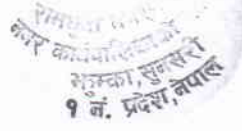 रामधुनी
नगर कार्यपालिकाको
झुम्का, सुनसरी
१ नं. प्रदेश, नेपाल